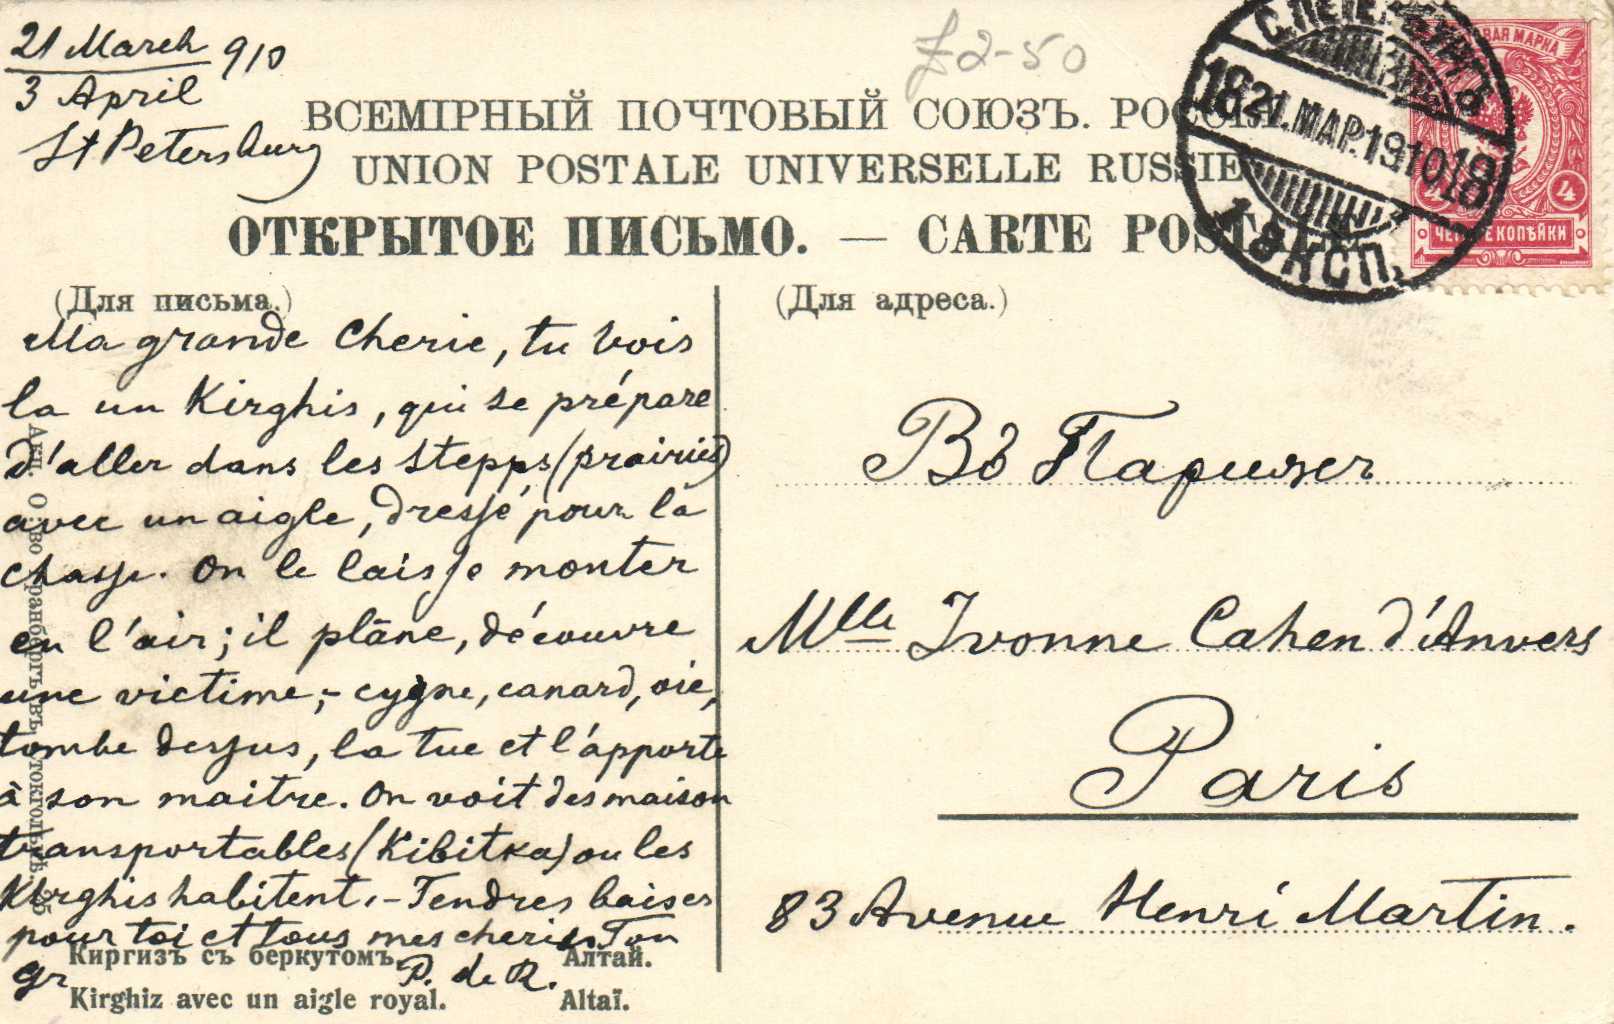 21 March 910
3 April
St Petersburg
£2-50
ВСЕМІРНЫЙ ПОЧТОВЫЙ СОЮЗЪ. РОССІЯ.
UNION POSTALE UNIVERSELLE RUSSIE
ОТКРЫТОЕ ПИСЬМО. — CARTE POSTALE
С.ПЕТЕРБУРГЪ
18 21.МАР.1910 18
1 ЭКСП.
МАРКА
4 4
ЧЕТЫРЕ КОПѢЙКИ
(Для письма.)
Ma grande cherie, tu vois
la un Kirghis, qui se prépare
d'aller dans les stepps (prairies)
avec un aigle, dressé pour la
chasse. On le laisse monter
en l'air; il plâne, découvre
une victime,- cygne, canard, oie,
tombe dessus, la tue et l'apporte
à son maitre. On voit des maison
transportables (Kibitka) ou les
Kirghis habitent.- Tendres baises
pour toi et tous mes cheris. Ton
gr P. de R.
Киргизъ съ беркутомъ. Алтай.
Kirghiz avec un aigle royal. Altaï.
Акц. О-во Гранбергъ въ Стокгольмѣ. 25
(Для адреса.)
Въ Парижъ
Mlle Ivonne Cahen d'Anvers
Paris
83 Avenue Henri Martin.